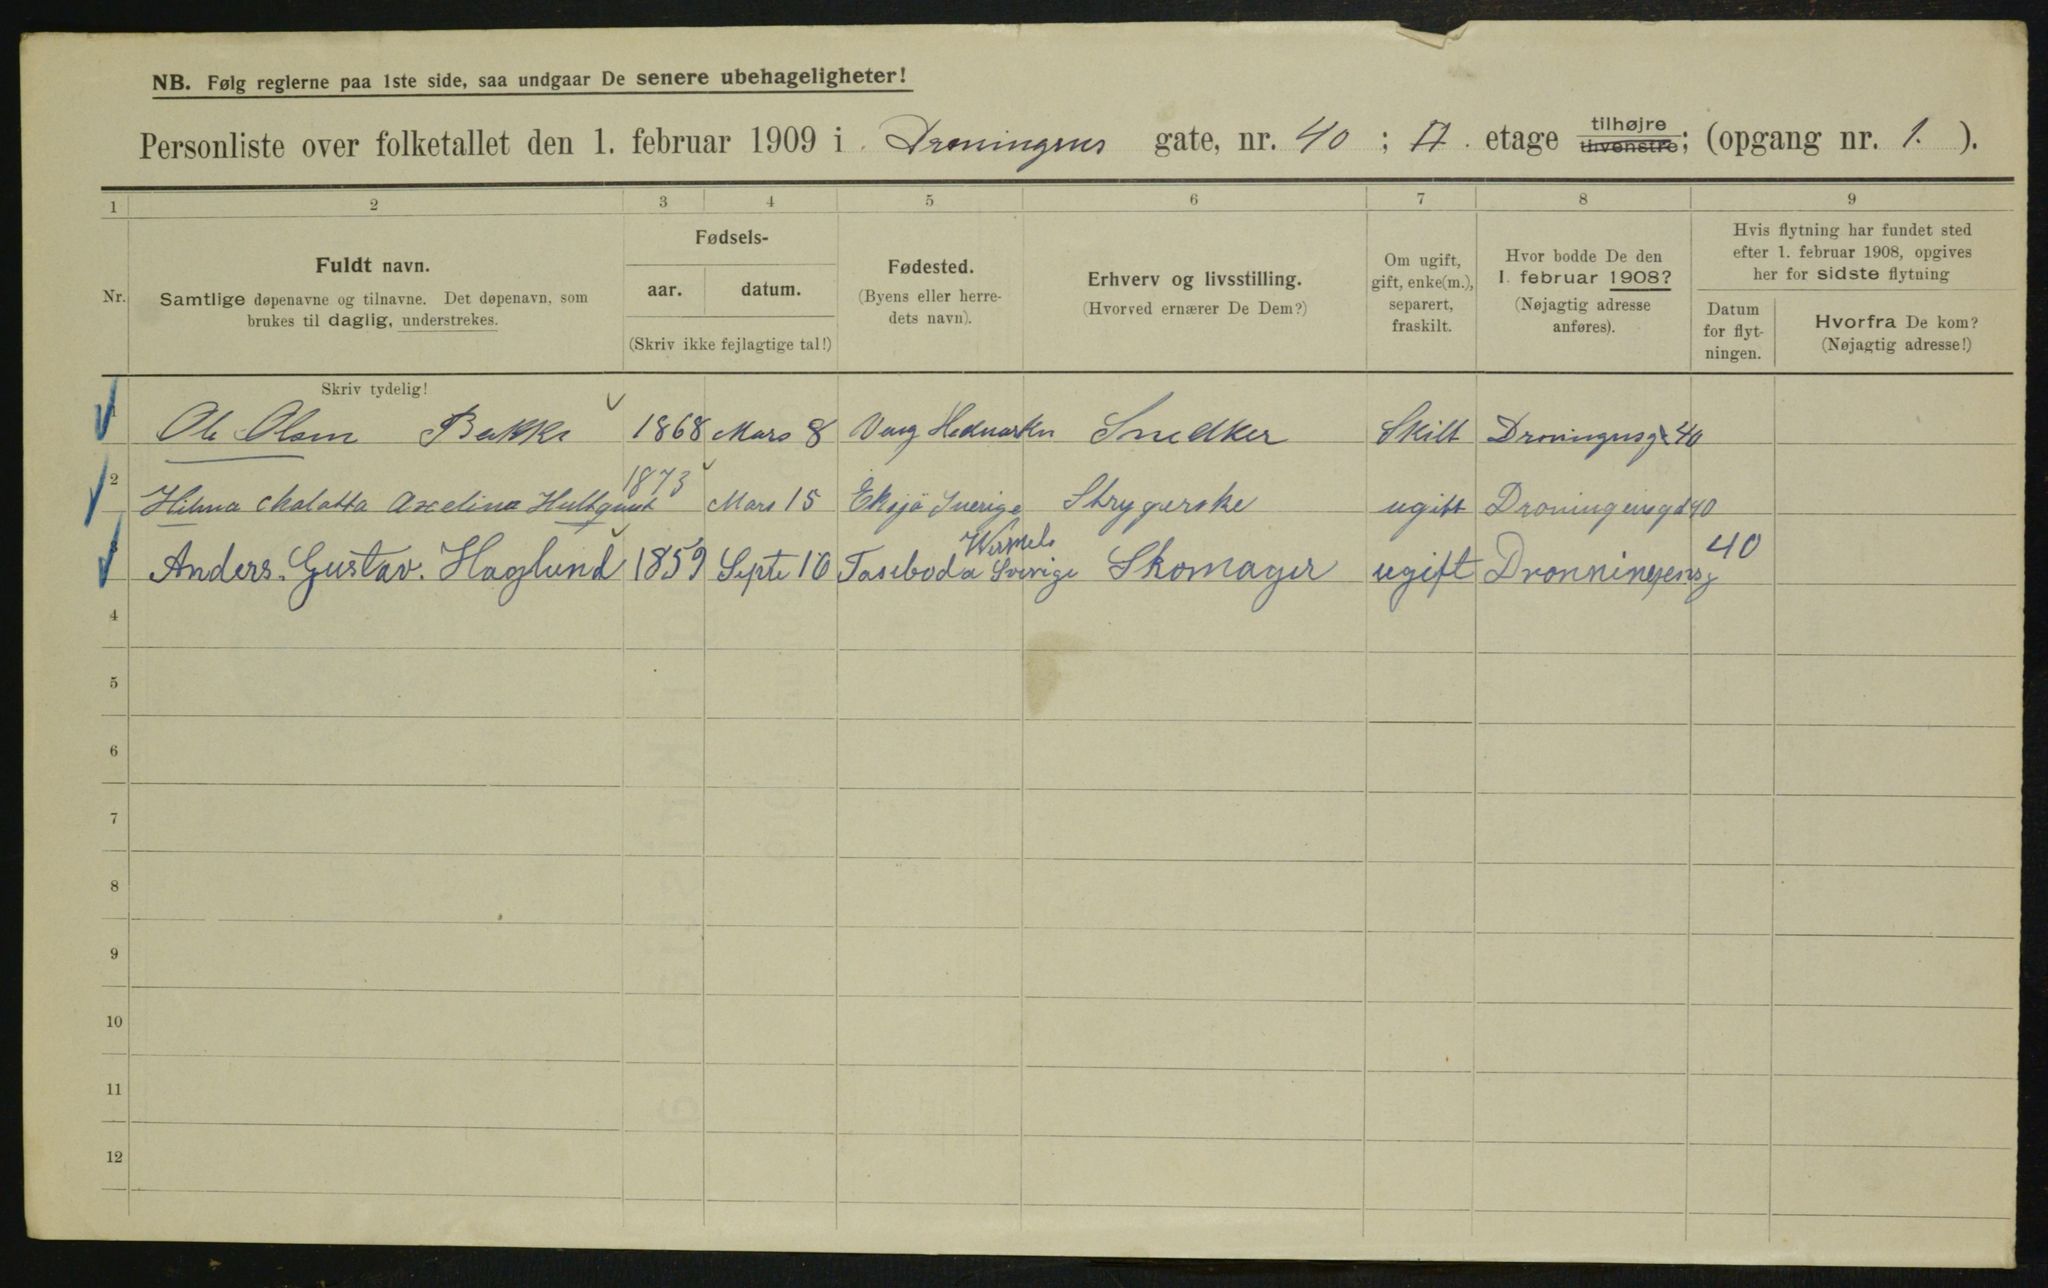 NB. Følg reglerne paa 1ste side, saa undgaar De senere ubehageligheter!
Personliste over folketallet den 1. februar 1909 i Droningens gate, nr. 40 ; II . etage tilhøjre tilvenstre; (opgang nr. 1. ).
1 2 3 4 5 6 7 8 9
Nr.
Fuldt navn.
Samtlige døpenavne og tilnavne. Det døpenavn, som
brukes til daglig, understrekes.
Skriv tydelig!
Fødsels-
aar. datum.
(Skriv ikke fejlagtige tal!)
Fødested.
(Byens eller herre-
dets navn).
Erhverv og livsstilling.
(Hvorved ernærer De Dem?)
Om ugift,
gift, enke(m.),
separert,
fraskilt.
Hvor bodde De den
1. februar 1908?
(Nøjagtig adresse
anføres).
Hvis flytning har fundet sted
efter 1. februar 1908, opgives
her for sidste flytning
Datum
for flyt-
ningen.
Hvorfra De kom?
(Nøjagtig adresse!)
1 Ole Olsen Bakke 1868 Mars 8 Vang Hedmarken Snedker Skilt Droningensg 40
2 Hilma Axelina Hultquist 1873 Mars 15 Eksjö Sverige Strygerske ugift Droningensgd 40
3 Anders. Gustav. Haglund 1859 Septe 10 Sverige Skomager ugift Dronningensg 40
4
5
6
7
8
9
10
11
12